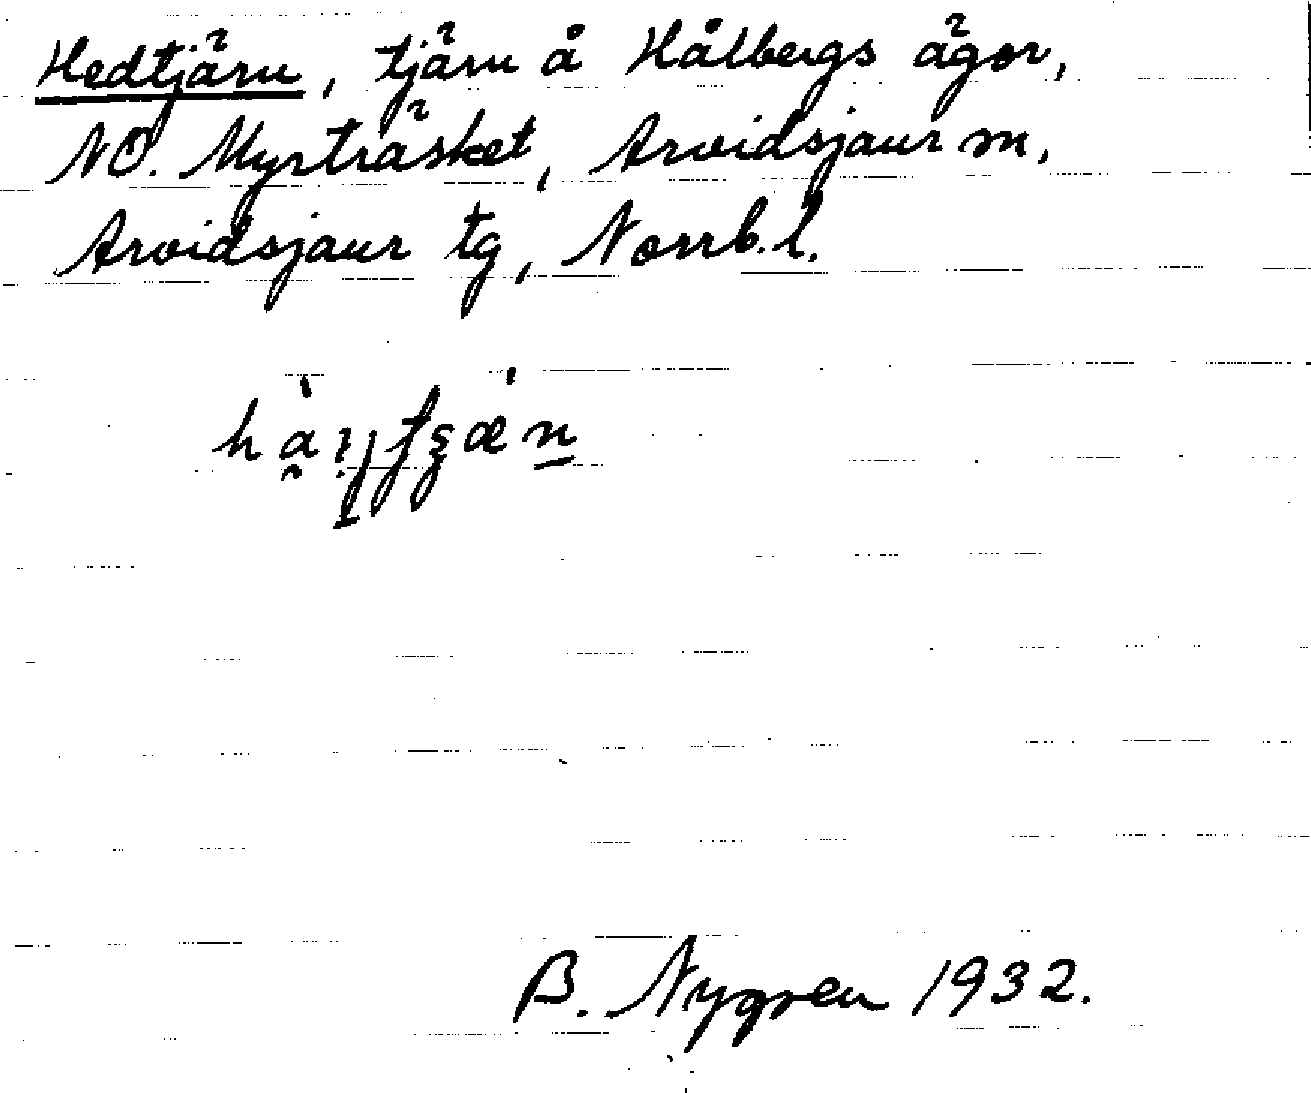 Hedtjärn, tjärn å Hålbergs ägor,
NO. Myrträsket, Arvidsjaur sn,
Arvidsjaur tg, Norrb. l.
B. Nygren 1932.